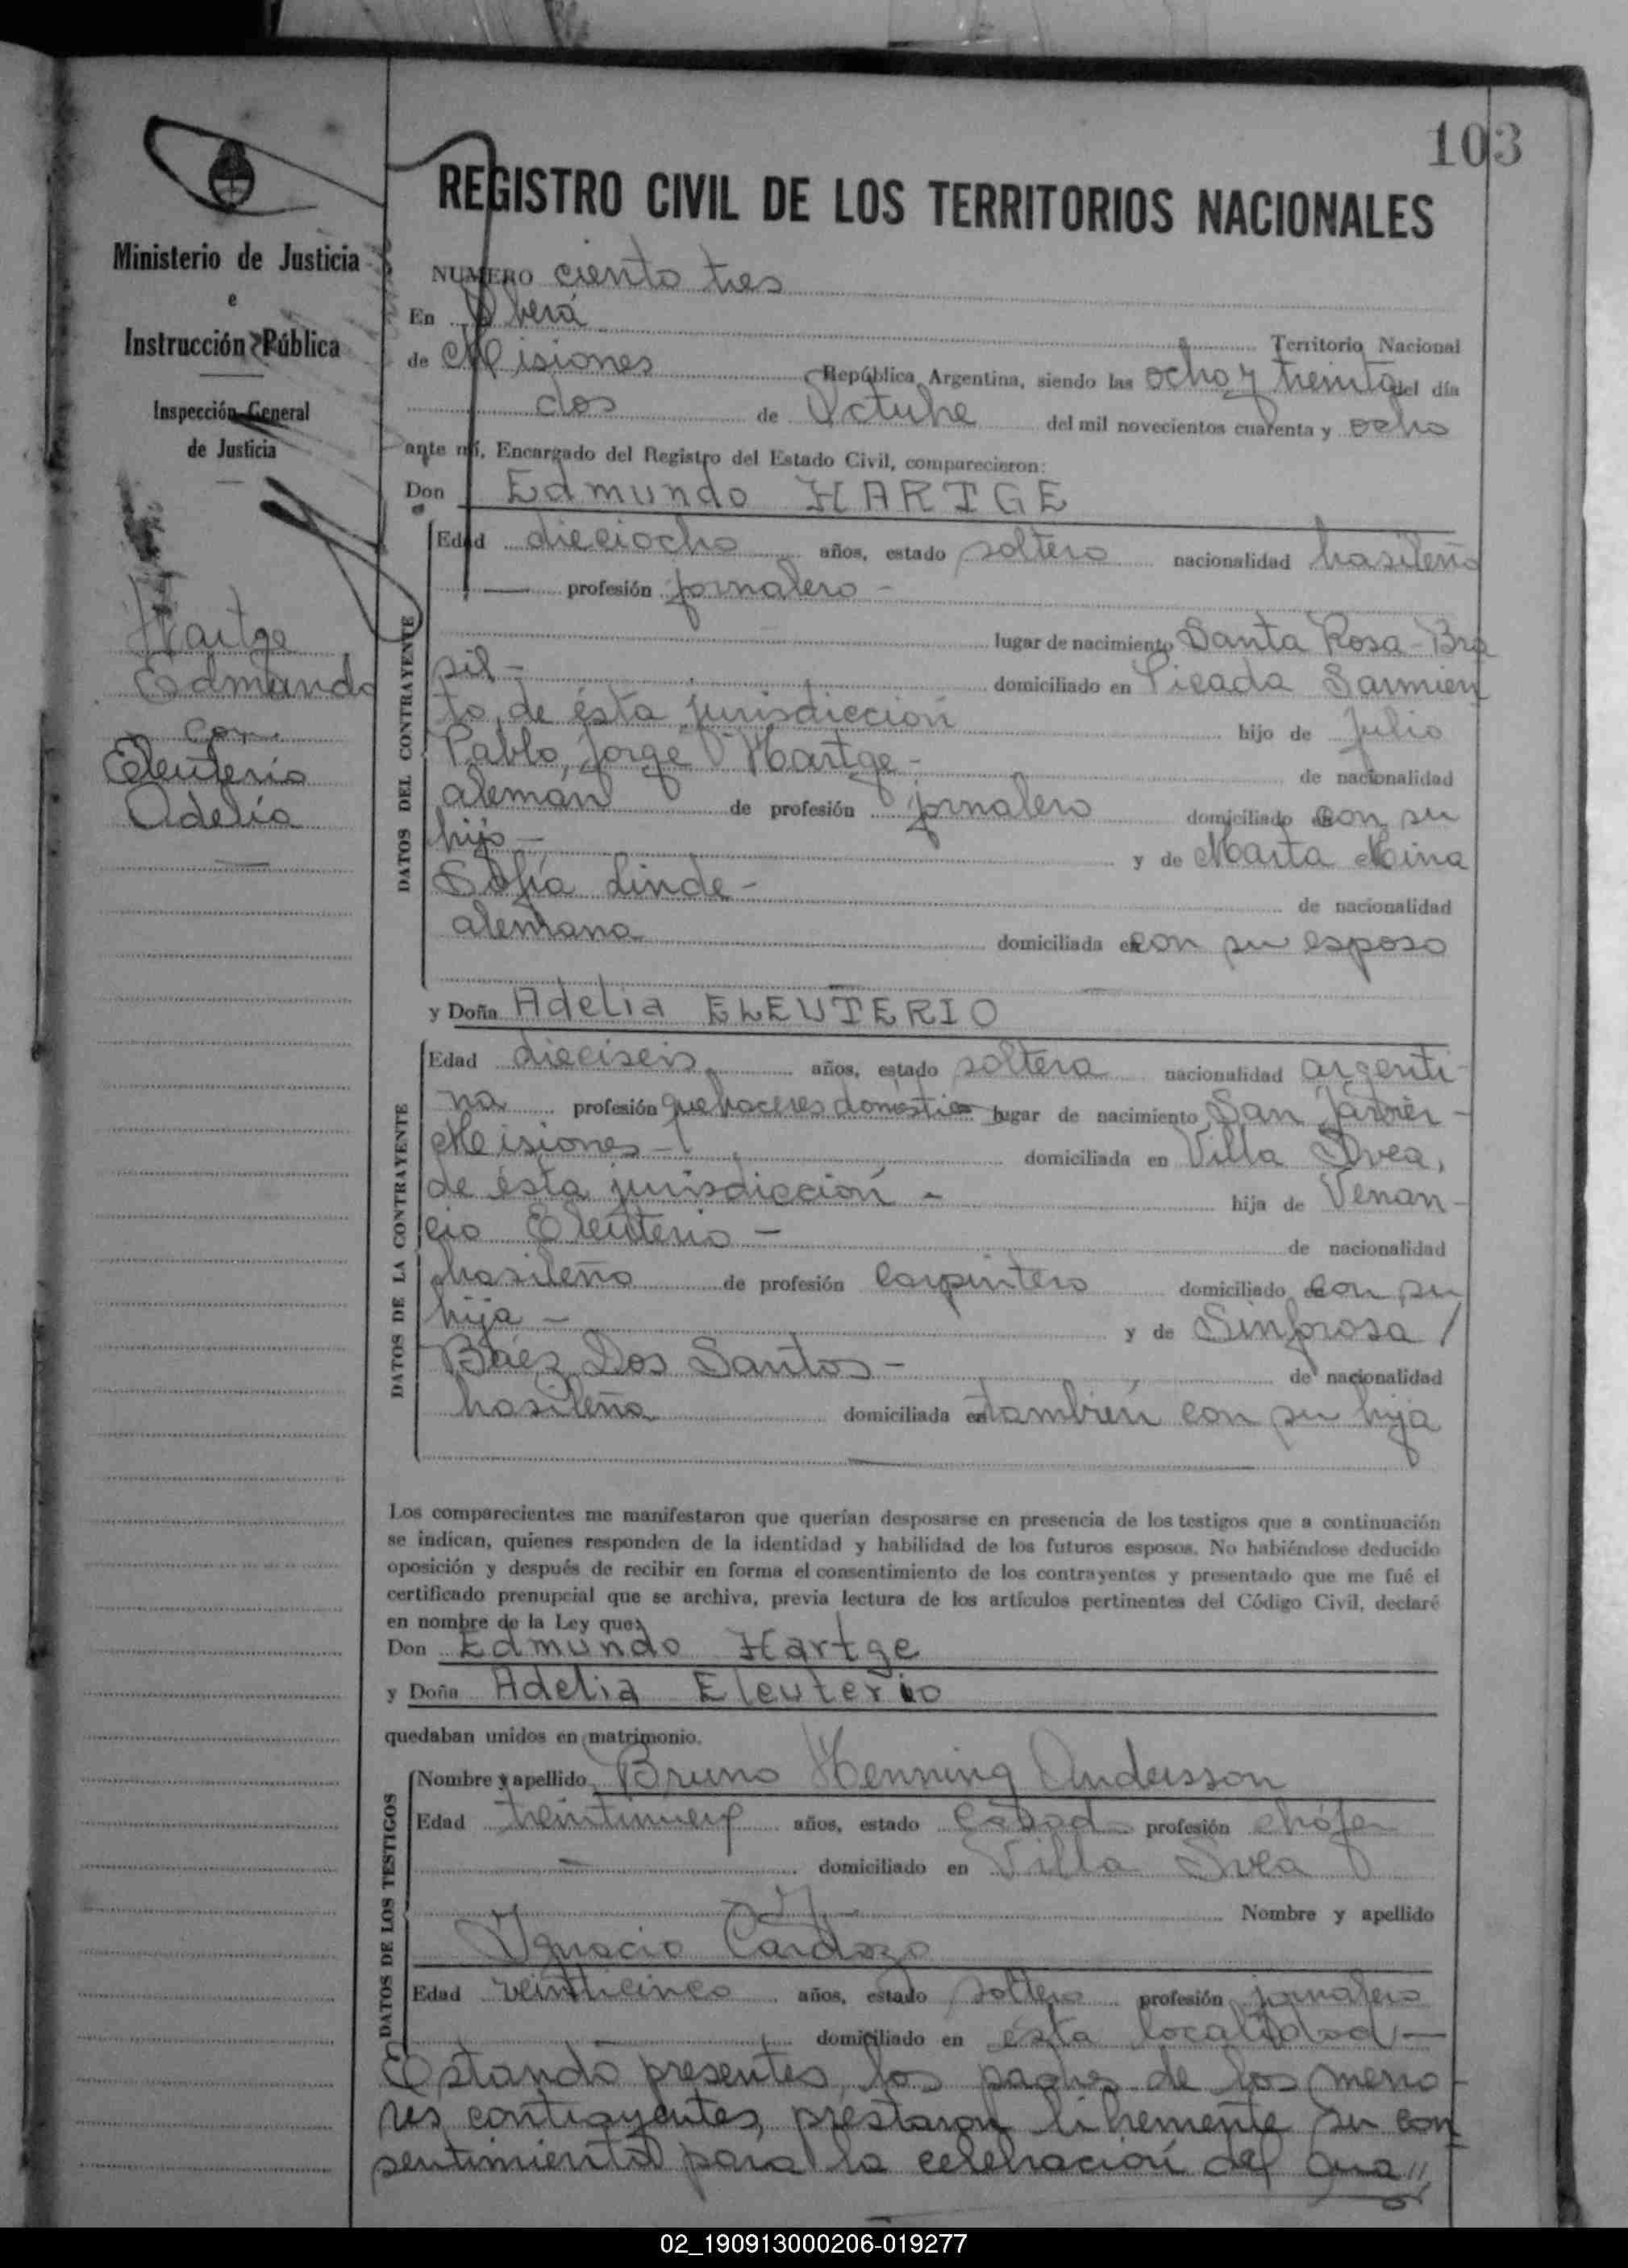 103
REGISTRO CIVIL DE LOS TERRITORIOS NACIONALES
Ministerio de Justicia
e
Instrucción Pública
Inspección General
de Justicia
Hartge
Edmundo
con
Eleuterio
Adelia
NUMERO ciento tres
En Oberá Territorio Nacional
de Misiones República Argentina, siendo las ocho y treinta del día
dos de Octubre del mil novecientos cuarenta y ocho
ante mí, Encargado del Registro del Estado Civil, comparecieron:
Don Edmundo HARTGE
DATOS DEL CONTRAYENTE
Edad dieciocho años, estado soltero nacionalidad brasileño
profesión jornalero -
lugar de nacimiento Santa Rosa - Bra
sil - domiciliado en Picada Sarmien
to, de ésta jurisdicción hijo de Julio
Pablo Jorge Hartge - de nacionalidad
alemán de profesión jornalero domiciliado con su
hijo - y de Marta Mina
Sofía Linde - de nacionalidad
alemana domiciliada con su esposo
y Doña Adelia ELEUTERIO
DATOS DE LA CONTRAYENTE
Edad dieciseis años, estado soltera nacionalidad argenti
na profesión quehaceres domésticos lugar de nacimiento San Javier -
Misiones - domiciliada en Villa Svea,
de ésta jurisdicción - hija de Venan-
cio Eleuterio - de nacionalidad
brasileño de profesión carpintero domiciliado con su
hija - y de Sinforosa /
Báez Dos Santos - de nacionalidad
brasileña domiciliada en también con su hija
Los comparecientes me manifestaron que querían desposarse en presencia de los testigos que a continuación
se indican, quienes responden de la identidad y habilidad de los futuros esposos. No habiéndose deducido
oposición y después de recibir en forma el consentimiento de los contrayentes y presentado que me fué el
certificado prenupcial que se archiva, previa lectura de los artículos pertinentes del Código Civil, declaré
en nombre de la Ley que:
Don Edmundo Hartge
y Doña Adelia Eleuterio
quedaban unidos en matrimonio.
DATOS DE LOS TESTIGOS
Nombre y apellido Bruno Henning Andersson
Edad treintinueve años, estado casado profesión chófer
domiciliado en Villa Svea
Nombre y apellido
Ignacio Cardozo
Edad veinticinco años, estado soltero profesión jornalero
domiciliado en ésta localidad -
Estando presentes los padres de los meno-
res contrayentes, prestaron libremente su con
sentimiento para la celebración del
02_190913000206-019277